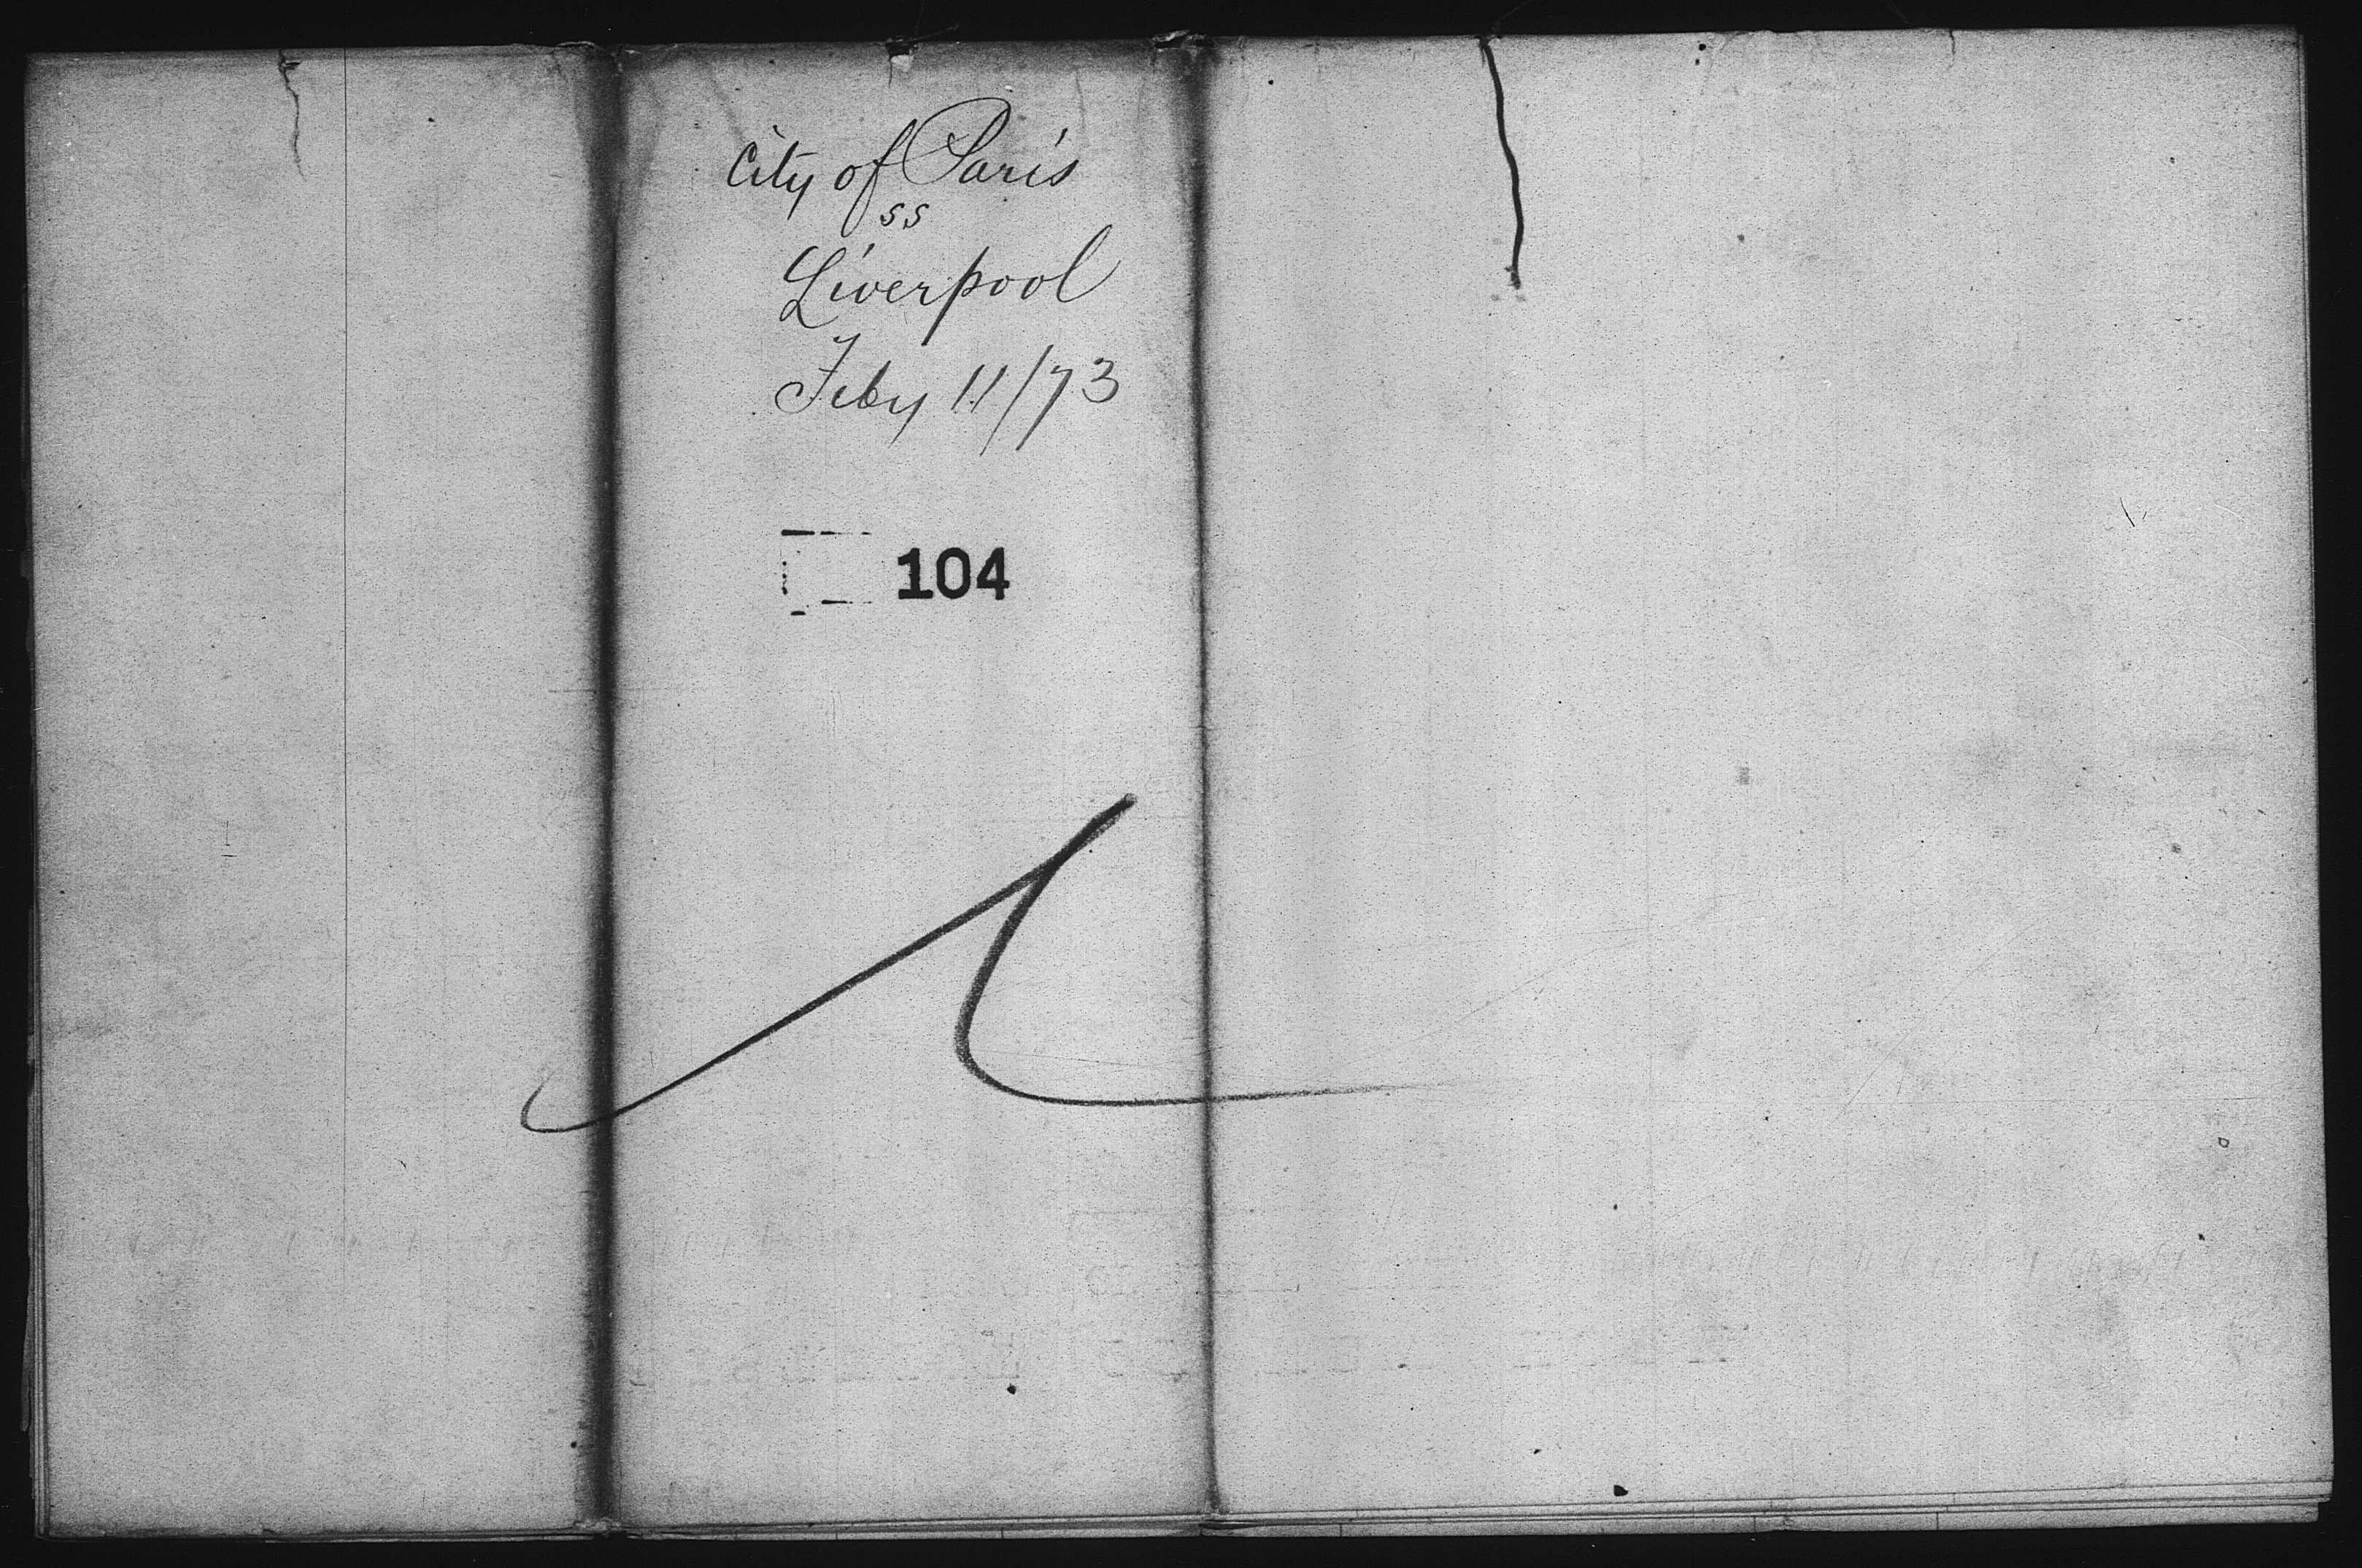 City of Paris
ss
Liverpool
Feby 11/73
104